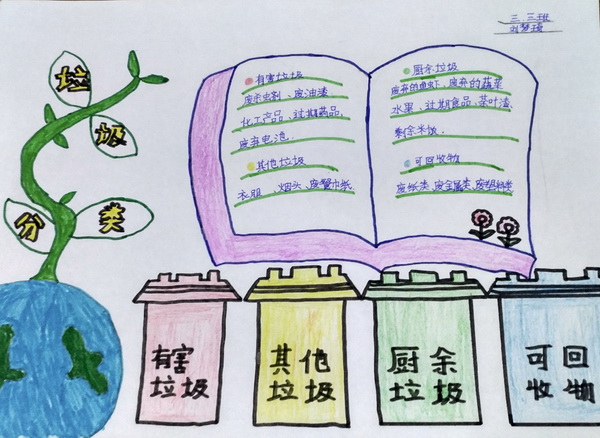 三.三班
刘梦琦
垃
圾
分
类
有害垃圾
废杀虫剂、废油漆
化工产品、过期药品、
废弃电池.
其他垃圾
衣服、烟头、废餐巾纸.
厨余垃圾
废弃的鱼虾、废弃的蔬菜
水果、过期食品、茶叶渣、
剩余米饭.
可回收物
废纸类、废金属类、废塑料类
有害
垃圾
其他
垃圾
厨余
垃圾
可回
收物